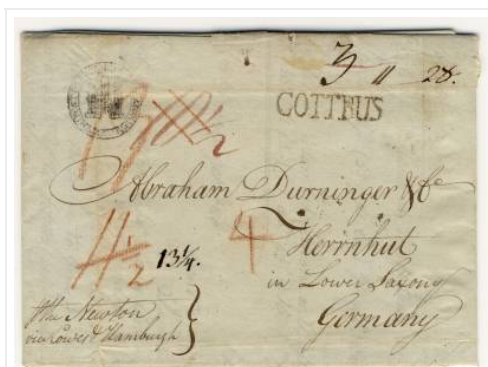 11 28.
COTTBUS
Abraham Durninger & Co
Herrnhut
in Lower Saxony
Germany
4
11 1/2
13 1/4.
p the Newton
via Cowes & Hamburgh